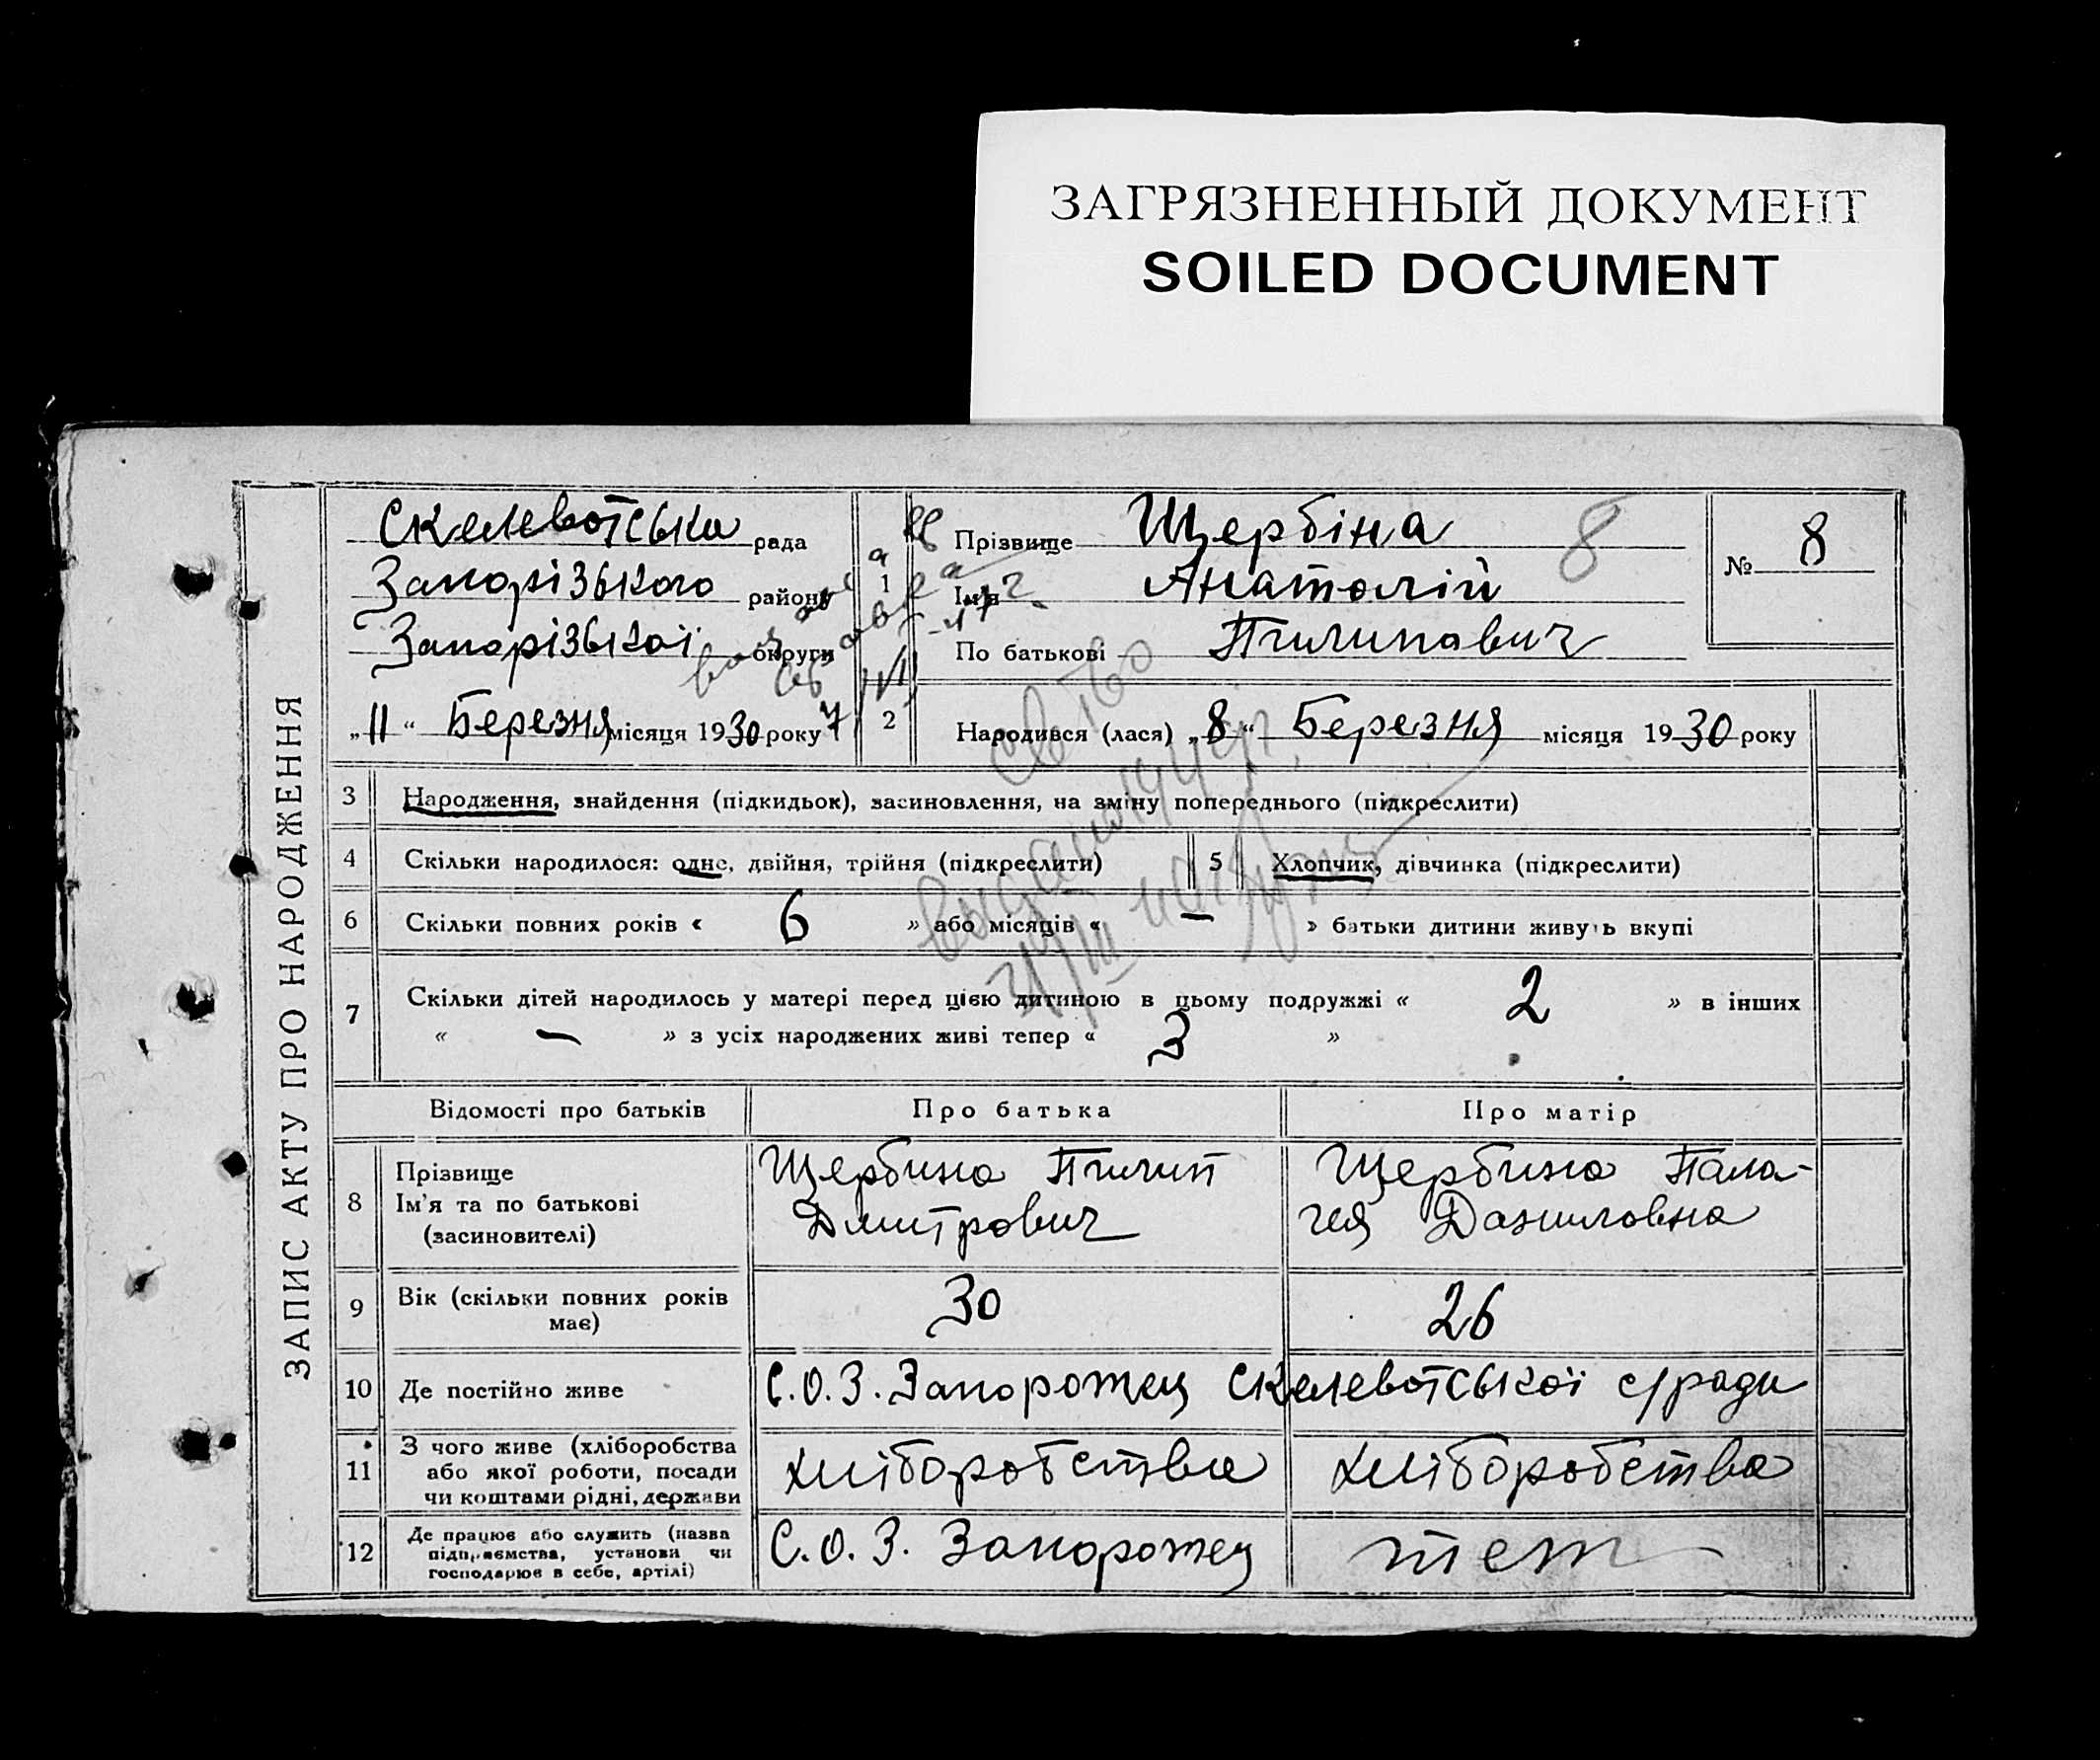 ЗАГРЯЗНЕННЫЙ ДОКУМЕНТ
SOILED DOCUMENT
ЗАПИС АКТУ ПРО НАРОДЖЕННЯ
Скелеватська рада
Запорізького району
Запорізької округи
„11“ Березня місяця 1930 року
1
Прізвище Щербіна
8
Ім'я Анатолій
По батькові Пилипович
№ 8
2
Народився (лася) „8“ Березня місяця 1930 року
3 Народження, знайдення (підкидьок), засиновлення, на зміну попереднього (підкреслити)
4 Скільки народилося: одне, двійня, трійня (підкреслити) 5 Хлопчик, дівчинка (підкреслити)
6 Скільки повних років « 6 » або місяців « — » батьки дитини живуть вкупі
7 Скільки дітей народилось у матері перед цією дитиною в цьому подружжі « 2 » в інших
« — » з усіх народжених живі тепер « 3 »
Відомості про батьків Про батька Про матір
8 Прізвище
Ім'я та по батькові
(засиновителі)
Щербина Пилип
Дмитрович
Щербина Пала-
гея Даниловна
9 Вік (скільки повних років
має)
30 26
10 Де постійно живе С.О.З. Запорожец Скелеватської с/ради
11 З чого живе (хліборобства
або якої роботи, посади
чи коштами рідні, держави
хліборобства хліборобства
12 Де працює або служить (назва
підприємства, установи чи
господарює в себе, артілі)
С.О.З. Запорожец